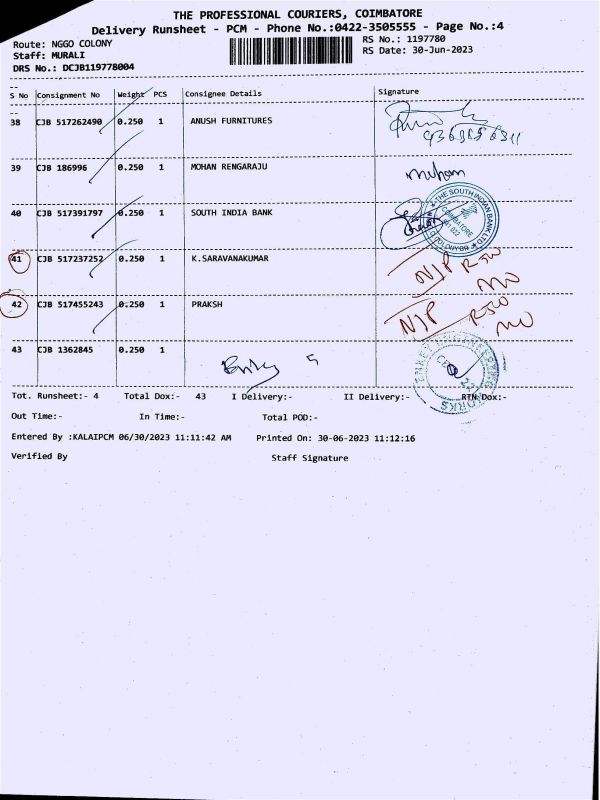 THE PROFESSIONAL COURIERS, COIMBATORE
Delivery Runsheet - PCM - Phone No.:0422-3505555 - Page No.:4
Route: NGGO COLONY
RS No.: 1197780
Staff: MURALI
RS Date: 30-Jun-2023
DRS No.: DCJB119778004
S No Consignment No Weight PCS Consignee Details Signature
38 CJB 517262490 0.250 1 ANUSH FURNITURES
39 CJB 186996 0.250 1 MOHAN RENGARAJU
40 CJB 517391797 0.250 1 SOUTH INDIA BANK
THE SOUTH INDIAN BANK LTD
41 CJB 517237252 0.250 1 K.SARAVANAKUMAR
42 CJB 517455243 0.250 1 PRAKSH
43 CJB 1362845 0.250 1
Tot. Runsheet:- 4 Total Dox:- 43 I Delivery:- II Delivery:- RTN Dox:-
Out Time:- In Time:- Total POD:-
Entered By :KALAIPCM 06/30/2023 11:11:42 AM Printed On: 30-06-2023 11:12:16
Verified By Staff Signature